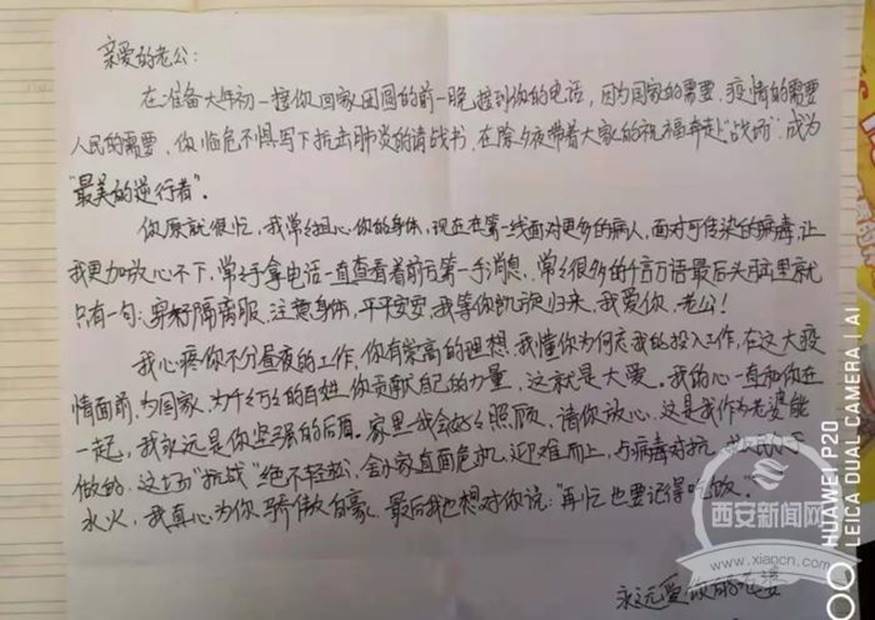 亲爱的老公：
在准备大年初一接你回家团圆的前一晚接到你的电话，因为国家的需要、疫情的需要
人民的需要，你临危不惧写下抗击肺炎的请战书，在除夕夜带着大家的祝福奔赴"战场"成为
"最美的逆行者"。
你原就很忙，我常担心你的身体，现在在第一线面对更多的病人，面对可传染的病毒，让
我更加放心不下，常手拿电话一直查看着前方第一手消息，常很多的千言万语最后头脑里就
只有一句：穿好隔离服，注意身体，平平安安，我等你凯旋归来，我爱你，老公！
我心疼你不分昼夜的工作，你有崇高的理想，我懂你为何忘我的投入工作，在这大疫
情面前，为国家，为千千万万的百姓你贡献自己的力量，这就是大爱。我的心一直和你在
一起，我永远是你坚强的后盾。家里我会好好照顾，请你放心，这是我作为老婆能
做的。这场"抗战"绝不轻松，舍小家直面危机，迎难而上，与病毒对抗，救人民于
水火，我真心为你骄傲自豪，最后我也想对你说："再忙也要记得吃饭。"
永远爱你的老婆
西安新闻网
www.xiancn.com
HUAWEI P20
LEICA DUAL CAMERA | AI